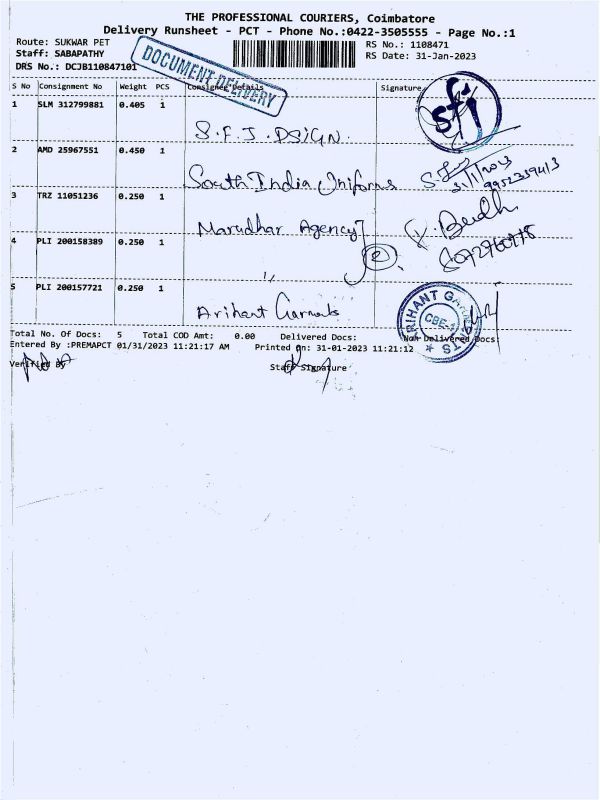 THE PROFESSIONAL COURIERS, Coimbatore
Delivery Runsheet - PCT - Phone No.:0422-3505555 - Page No.:1
Route: SUKWAR PET
Staff: SABAPATHY
DRS No.: DCJB110847101
DOCUMENT DELIVERY
RS No.: 1108471
RS Date: 31-Jan-2023
S No Consignment No Weight PCS Consignee Details Signature
1 SLM 312799881 0.405 1
S.F.J. DSIGN
sfj
2 AMD 25967551 0.450 1
South India Uniforms
31/1/2023
9952339413
3 TRZ 11051236 0.250 1
Marudhar Agency
4 PLI 200158389 0.250 1
2
8072760178
5 PLI 200157721 0.250 1
Arihant Garments
ARIHANT CBE-1
Total No. Of Docs: 5 Total COD Amt: 0.00 Delivered Docs: Non Delivered Docs:
Entered By :PREMAPCT 01/31/2023 11:21:17 AM Printed On: 31-01-2023 11:21:12
Verified By Staff Signature